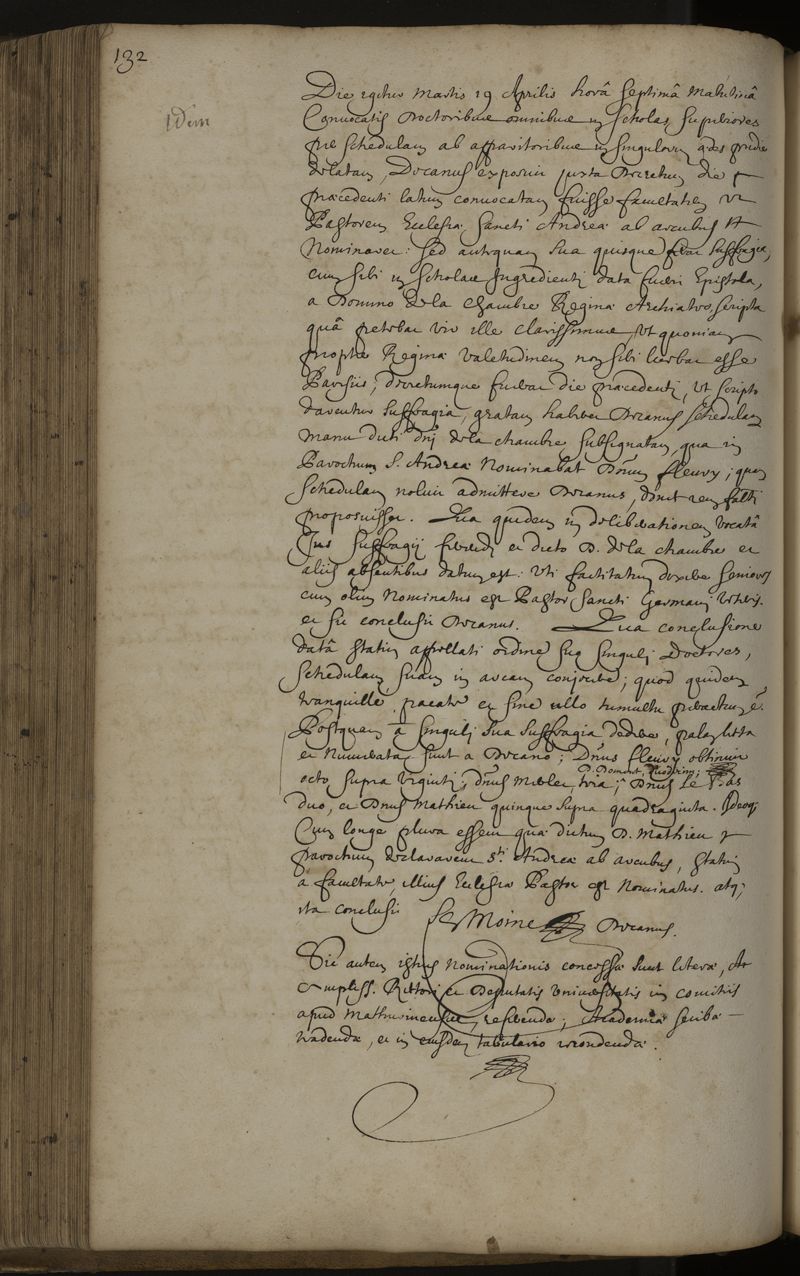 132
Idem
Die igitur Martis 19 Aprilis horâ septimâ matutinâ
Convocatis Doctoribus omnibus in scholas superiores
per schedulam ab apparitoribus in singulorum ædes pridie
delatam, Decanus exposuit juxta Decretum die
præcedenti latum convocatam fuisse facultatem ut
Pastorem Ecclesiæ Sancti Andreæ ab arcubus
Nominaret: sed antequam sua quisque ferat suffragia,
cum sibi in scholas ingredienti data fuerit Epistola,
a Domino de la Chambre Reginæ Archiatro, scripta
quâ petebat vir ille clarissimus, ut quoniam
propter Reginæ valetudinem non sibi licebat esse
Parisiis, decretumque fuerat die præcedenti, ut scripto
darentur suffragia, gratam haberet Decanus schedulam
manu dicti dni de la chambre subsignatam, qua in
Parochum S. Andreæ Nominabat Dnum fleury; quam
schedulam noluit admittere Decanus, donec rem
proposuisset. Qua quidem in deliberationem vocatâ
Jus suffragij ferendi et dicto D. de la chambre et
aliis absentibus datum est: uti factitatum
cum olim Nominatus est Pastor Sancti Germani veteris.
et sic conclusit Decanus. Qua conclusione
datâ statim appellati ordine suo singuli Doctores,
schedulam suam in arcam conjecere; quod quidem
tranquille, pacate et sine ullo tumultu peractum e.
Postquam a singulis sua suffragia dedere, palam lecta
et Numerata sunt a Decano; Dnus fleury obtinuit
D. Poderino;
octo supra viginti, dnus tria; Dnus le
duo, et Dnus Mathieu quinque supra quadraginta. Ideoq;
Cum longe plura essent quæ dictum D. Mathieu
parochum declararent sti Andreæ ab arcubus, statim
a facultate, illius Ecclesiæ Pastor est Nominatus. atq;
ita conclusit Le Moine Decanus.
Sic autem istius Nominationis concessæ sunt literæ,
ampliss. Rectori et Deputatis Universitatis in comitiis
apud Mathurinenses; Academiæ scribæ
tradendæ, et in ejusdem tabulario recondendæ.